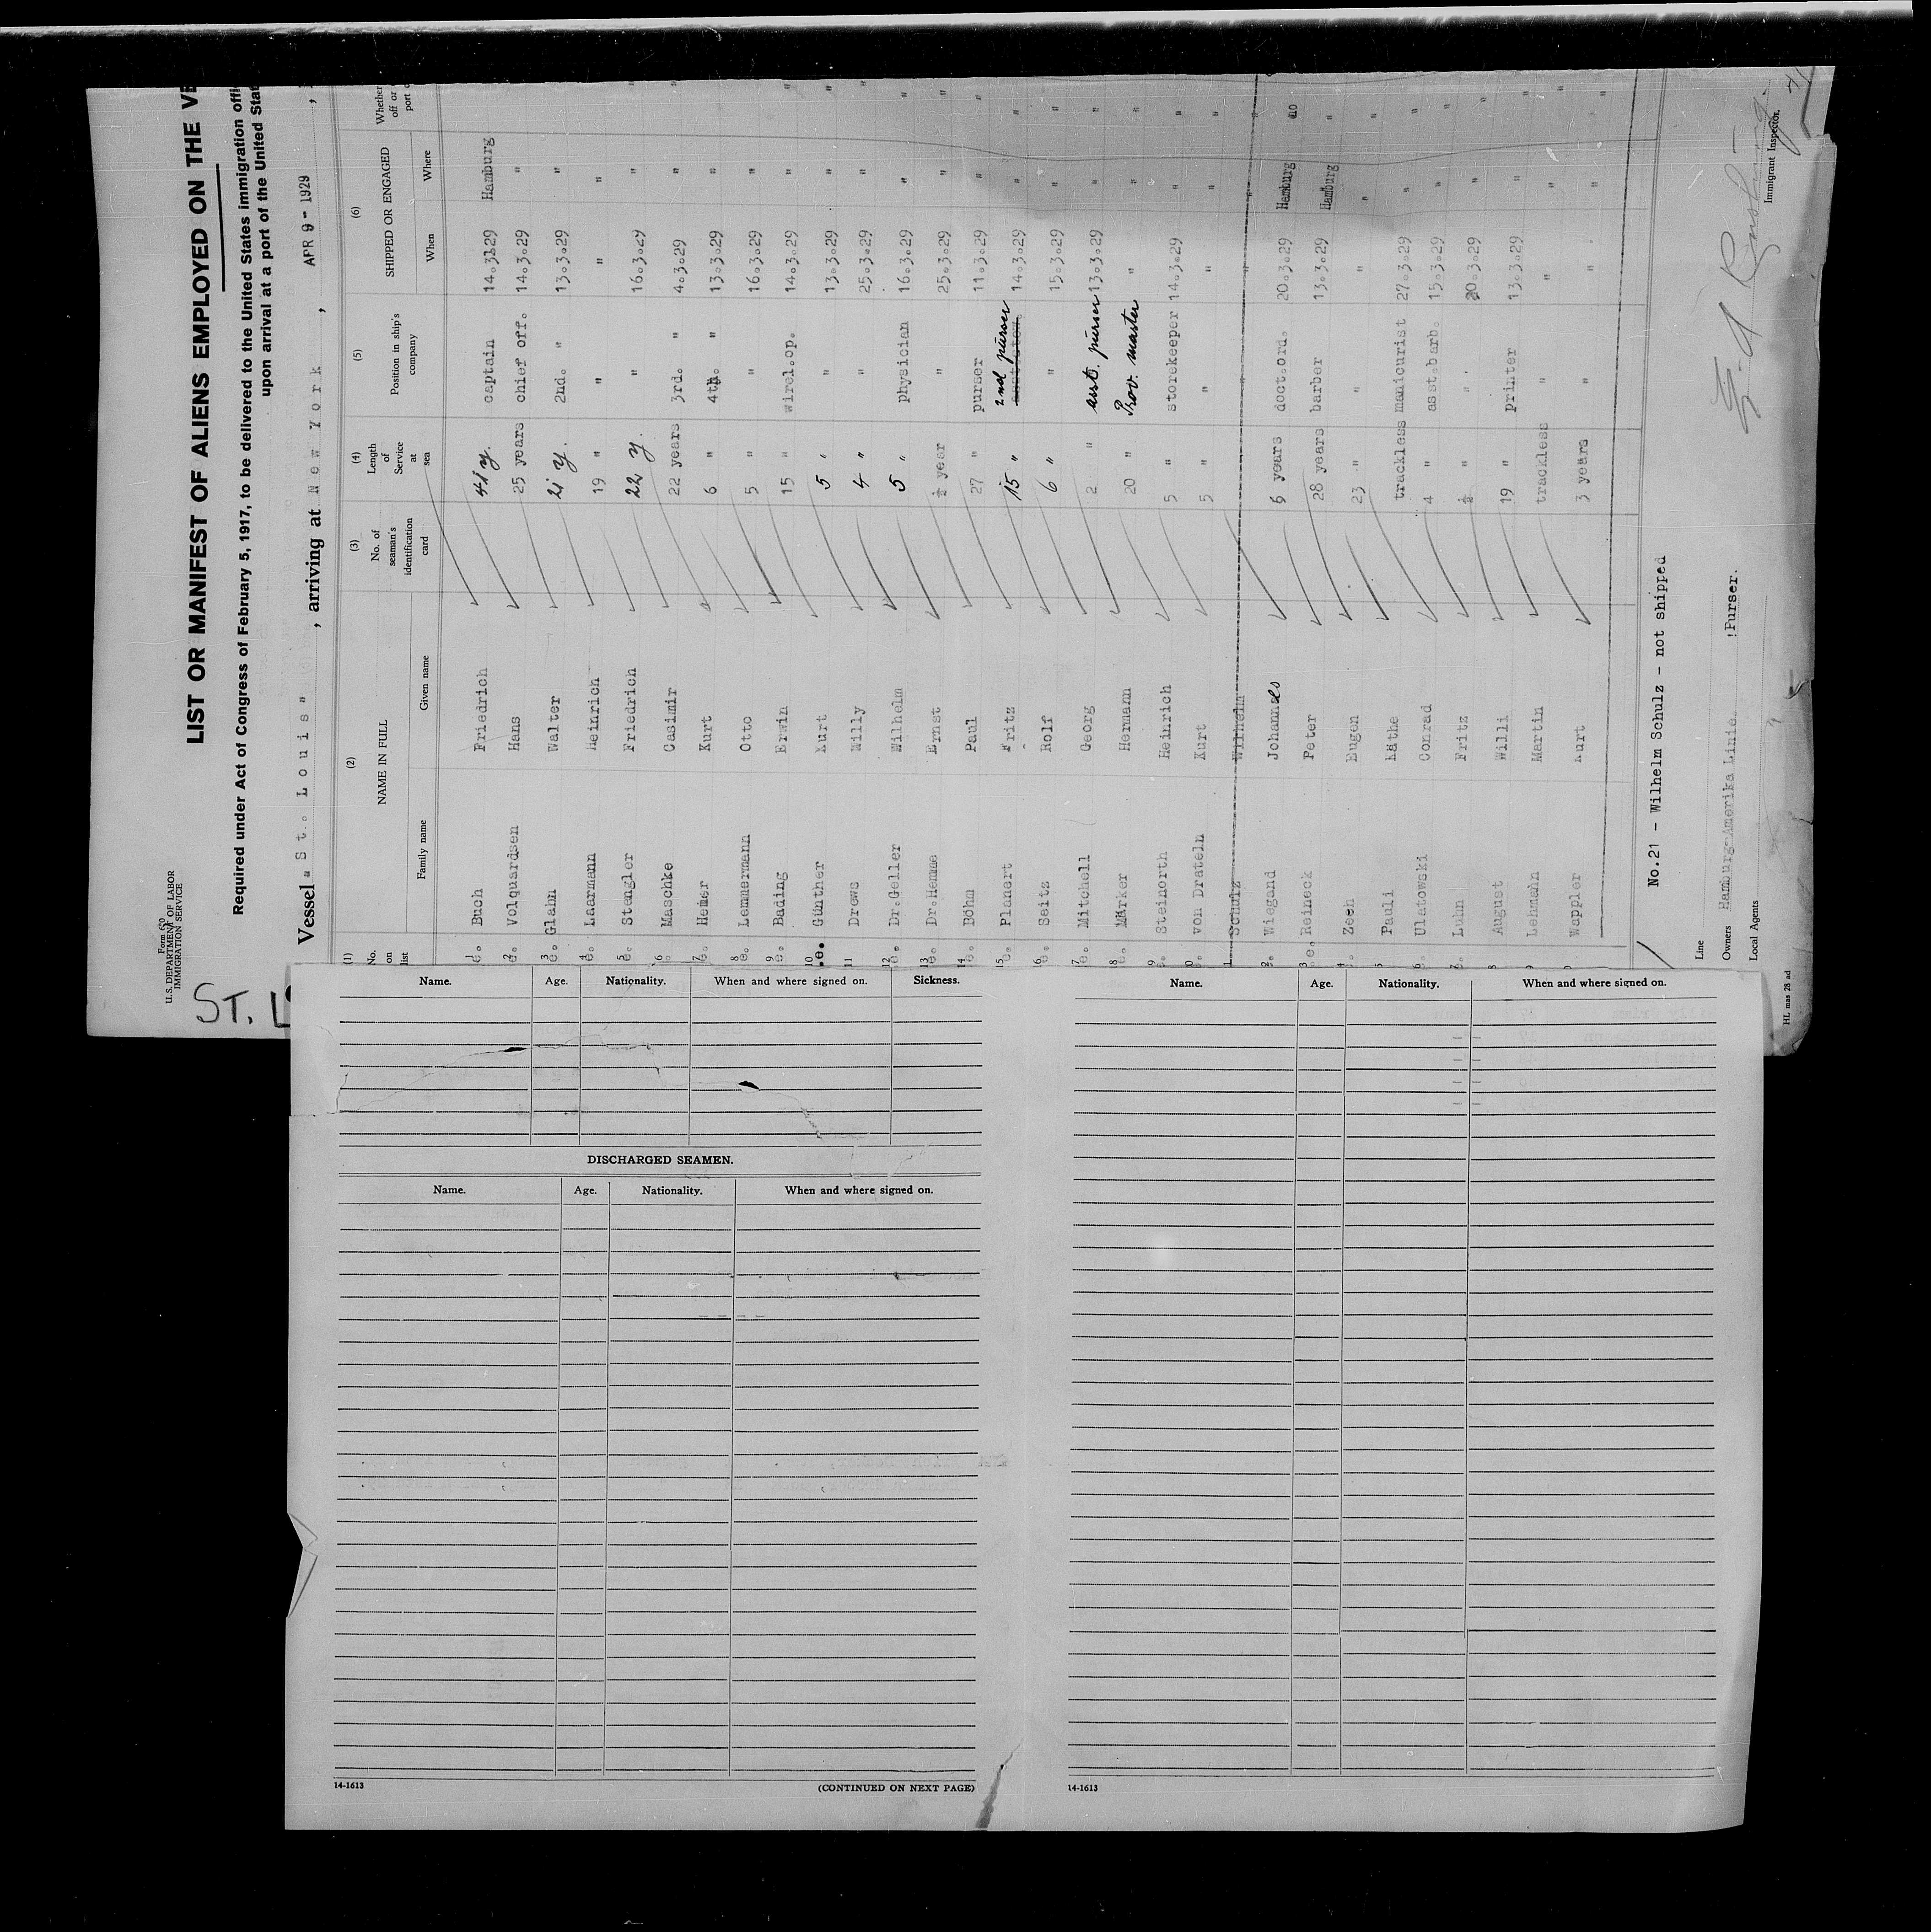 Form 680
U.S. DEPARTMENT OF LABOR
IMMIGRATION SERVICE
ST. L
LIST OR MANIFEST OF ALIENS EMPLOYED ON THE VE
Required under Act of Congress of February 5, 1917, to be delivered to the United States immigration offi
upon arrival at a port of the United Stat
Vessel "St. Louis" , arriving at New York , APR 9 - 1929 ,
(1) (2) (3) (4) (5) (6)
No. on list NAME IN FULL No. of seaman's identification card Length of Service at sea Position in ship's company SHIPPED OR ENGAGED Whether
off or
port o
Family name Given name When Where
1 Buch Friedrich 41 y. captain 14.3.29 Hamburg "
2 Volquardsen Hans 25 years chief off. 14.3.29 " "
3 Glahn Walter 21 y. 2nd. " 13.3.29 " "
4 Laarmann Heinrich 19 " " " " "
5 Stengler Friedrich 22 y. " 16.3.29 " "
6 Maschke Casimir 22 years 3rd. " 4.3.29 " "
7 Hemer Kurt 6 " 4th. " 13.3.29 " "
8 Lemmermann Otto 5 " " 16.3.29 " "
9 Bading Erwin 15 " wirel.op. 14.3.29 " "
10 Günther Kurt 5 " " 13.3.29 " "
11 Drews Willy 4 " " 25.3.29 " "
12 Dr.Geller Wilhelm 5 " physician 16.3.29 " "
13 Dr.Hemme Ernst ½ year " 25.3.29 " "
14 Böhm Paul 27 " purser 11.3.29 " "
15 Planert Fritz 15 " 2nd purser 14.3.29 " "
16 Seitz Rolf 6 " " 15.3.29 " "
17 Mitchell Georg 2 " asst. purser 13.3.29 " "
18 Märker Hermann 20 " Prov. master " " "
19 Steinorth Heinrich 5 " storekeeper 14.3.29 " "
20 von Drateln Kurt 5 " " " " "
21 Schulz Wilhelm " " "
22 Wiegand Johannes 6 years doct.ord. 20.3.29 Hamburg no
23 Reineck Peter 28 years barber 13.3.29 Hamburg "
24 Zeeh Eugen 23 " " " " "
25 Pauli Käthe trackless manicurist 27.3.29 " "
26 Ulatowski Conrad 4 " asst.barb. 15.3.29 " "
27 Luhn Fritz ½ " " 20.3.29 " "
28 August Willi 19 " printer 13.3.29 " "
29 Lehmann Martin trackless " " " "
30 Wappler Kurt 3 years " " " "
No.21 - Wilhelm Schulz - not shipped
Line
Owners Hamburg-Amerika Linie. Purser.
Local Agents
Immigrant Inspector.
HL mas 28 ad
Name. Age. Nationality. When and where signed on. Sickness.
DISCHARGED SEAMEN.
Name. Age. Nationality. When and where signed on.
14-1613 (CONTINUED ON NEXT PAGE)
Name. Age. Nationality. When and where signed on.
14-1613